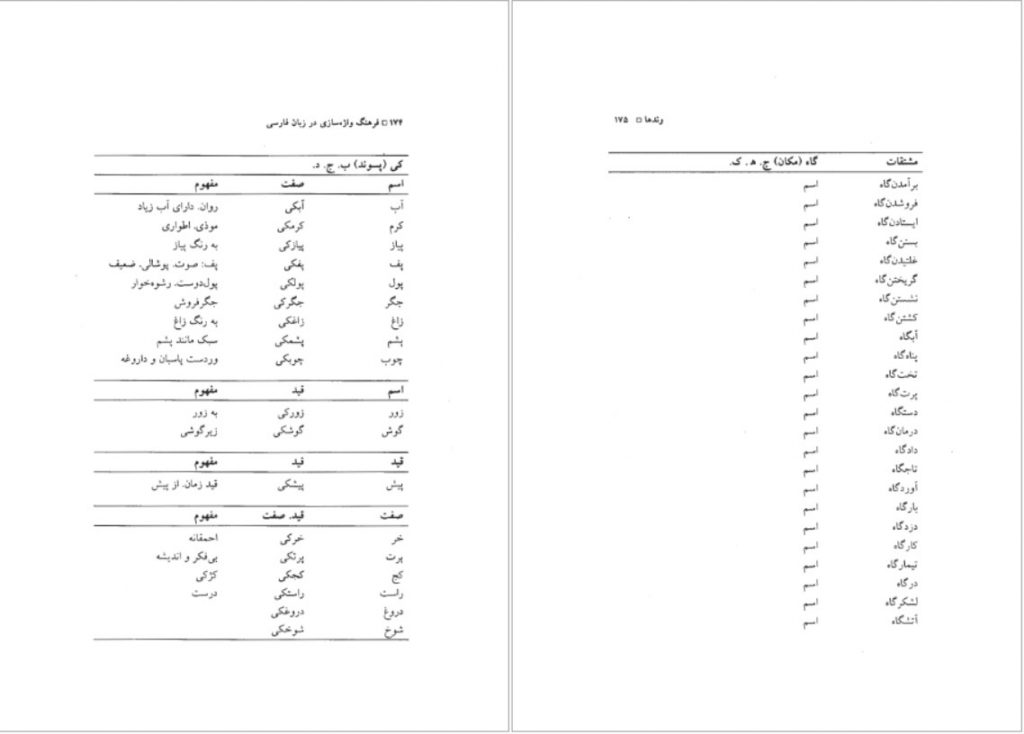 ۱۷۴ □ فرهنگ واژه‌سازی در زبان فارسی
کی (پسوند) ب. ج. د.
اسم صفت مفهوم
آب آبکی روان. دارای آب زیاد
کرم کرمکی موذی. اطواری
پیاز پیازکی به رنگ پیاز
پف پفکی پف: صوت. پوشالی. ضعیف
پول پولکی پول‌دوست. رشوه‌خوار
جگر جگرکی جگرفروش
زاغ زاغکی به رنگ زاغ
پشم پشمکی سبک مانند پشم
چوب چوبکی وردست پاسبان و داروغه
اسم قید مفهوم
زور زورکی به زور
گوش گوشکی زیرگوشی
قید قید مفهوم
پیش پیشکی قید زمان. از پیش
صفت قید. صفت مفهوم
خر خرکی احمقانه
پرت پرتکی بی‌فکر و اندیشه
کج کجکی کژکی
راست راستکی درست
دروغ دروغکی
شوخ شوخکی
وندها □ ۱۷۵
مشتقات گاه (مکان) ج. ه. ک.
برآمدن‌گاه اسم
فروشدن‌گاه اسم
ایستادن‌گاه اسم
بستن‌گاه اسم
غلتیدن‌گاه اسم
گریختن‌گاه اسم
نشستن‌گاه اسم
کشتن‌گاه اسم
آبگاه اسم
پناه‌گاه اسم
تخت‌گاه اسم
پرت‌گاه اسم
دستگاه اسم
درمان‌گاه اسم
دادگاه اسم
تاجگاه اسم
آوردگاه اسم
بارگاه اسم
دزدگاه اسم
کارگاه اسم
تیمارگاه اسم
درگاه اسم
لشکرگاه اسم
آتشگاه اسم